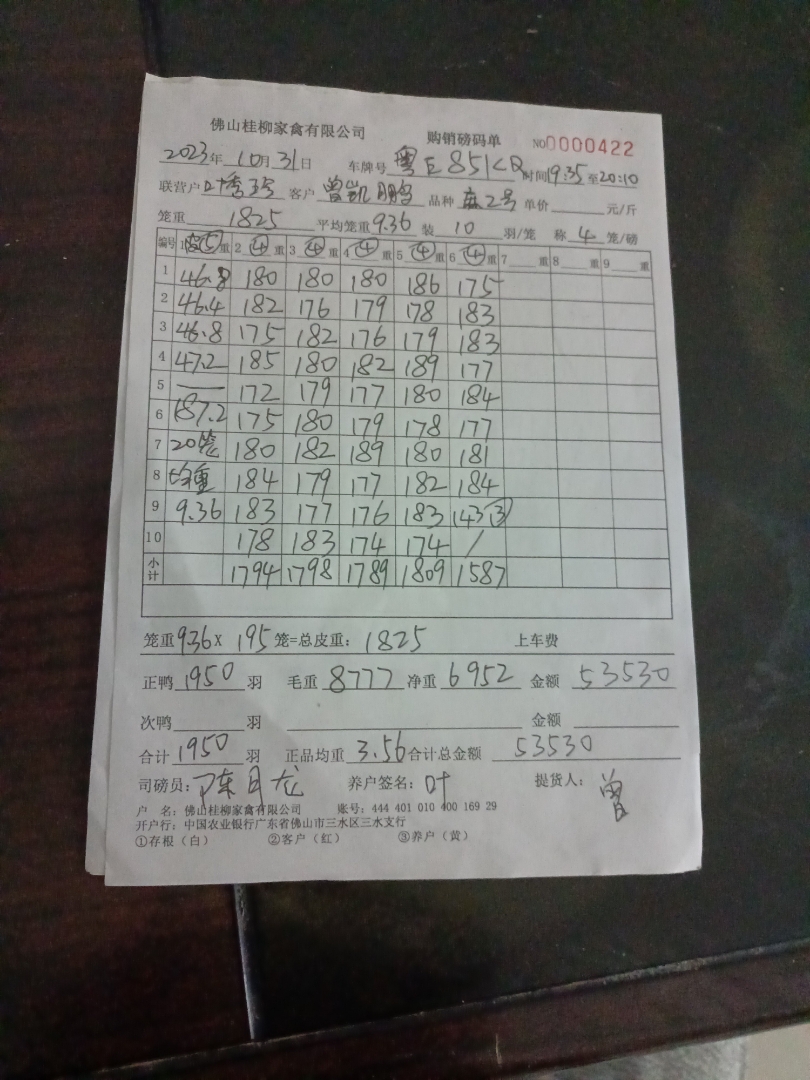 佛山桂柳家禽有限公司 购销磅码单 NO0000422
2023年10月31日 车牌号 粤E 851 时间19:35至20:10
联营户 叶 客户 曾凯鹏 品种 麻2号 单价 元/斤
笼重 1825 平均笼重9.36 装 10 羽/笼 称 4 笼/磅
编号 1 ⑤重 2 ④重 3 ④重 4 ④重 5 ④重 6 ④重 7 重 8 重 9 重
1 46.8 180 180 180 186 175
2 46.4 182 176 179 178 183
3 46.8 175 182 176 179 183
4 47.2 185 180 182 189 177
5 — 172 179 177 180 184
6 187.2 175 180 179 178 177
7 20笼 180 182 189 180 181
8 均重 184 179 177 182 184
9 9.36 183 177 176 183 143③
10 178 183 174 174 /
小计 1794 1798 1789 1809 1587
笼重9.36X 195 笼=总皮重: 1825 上车费
正鸭 1950 羽 毛重 8777 净重 6952 金额 53530
次鸭 羽 金额
合计 1950 羽 正品均重 3.56 合计总金额 53530
司磅员: 陈月龙 养户签名: 叶 提货人: 曾
户 名: 佛山桂柳家禽有限公司 账号: 444 401 010 400 169 29
开户行: 中国农业银行广东省佛山市三水区三水支行
①存根(白) ②客户(红) ③养户(黄)